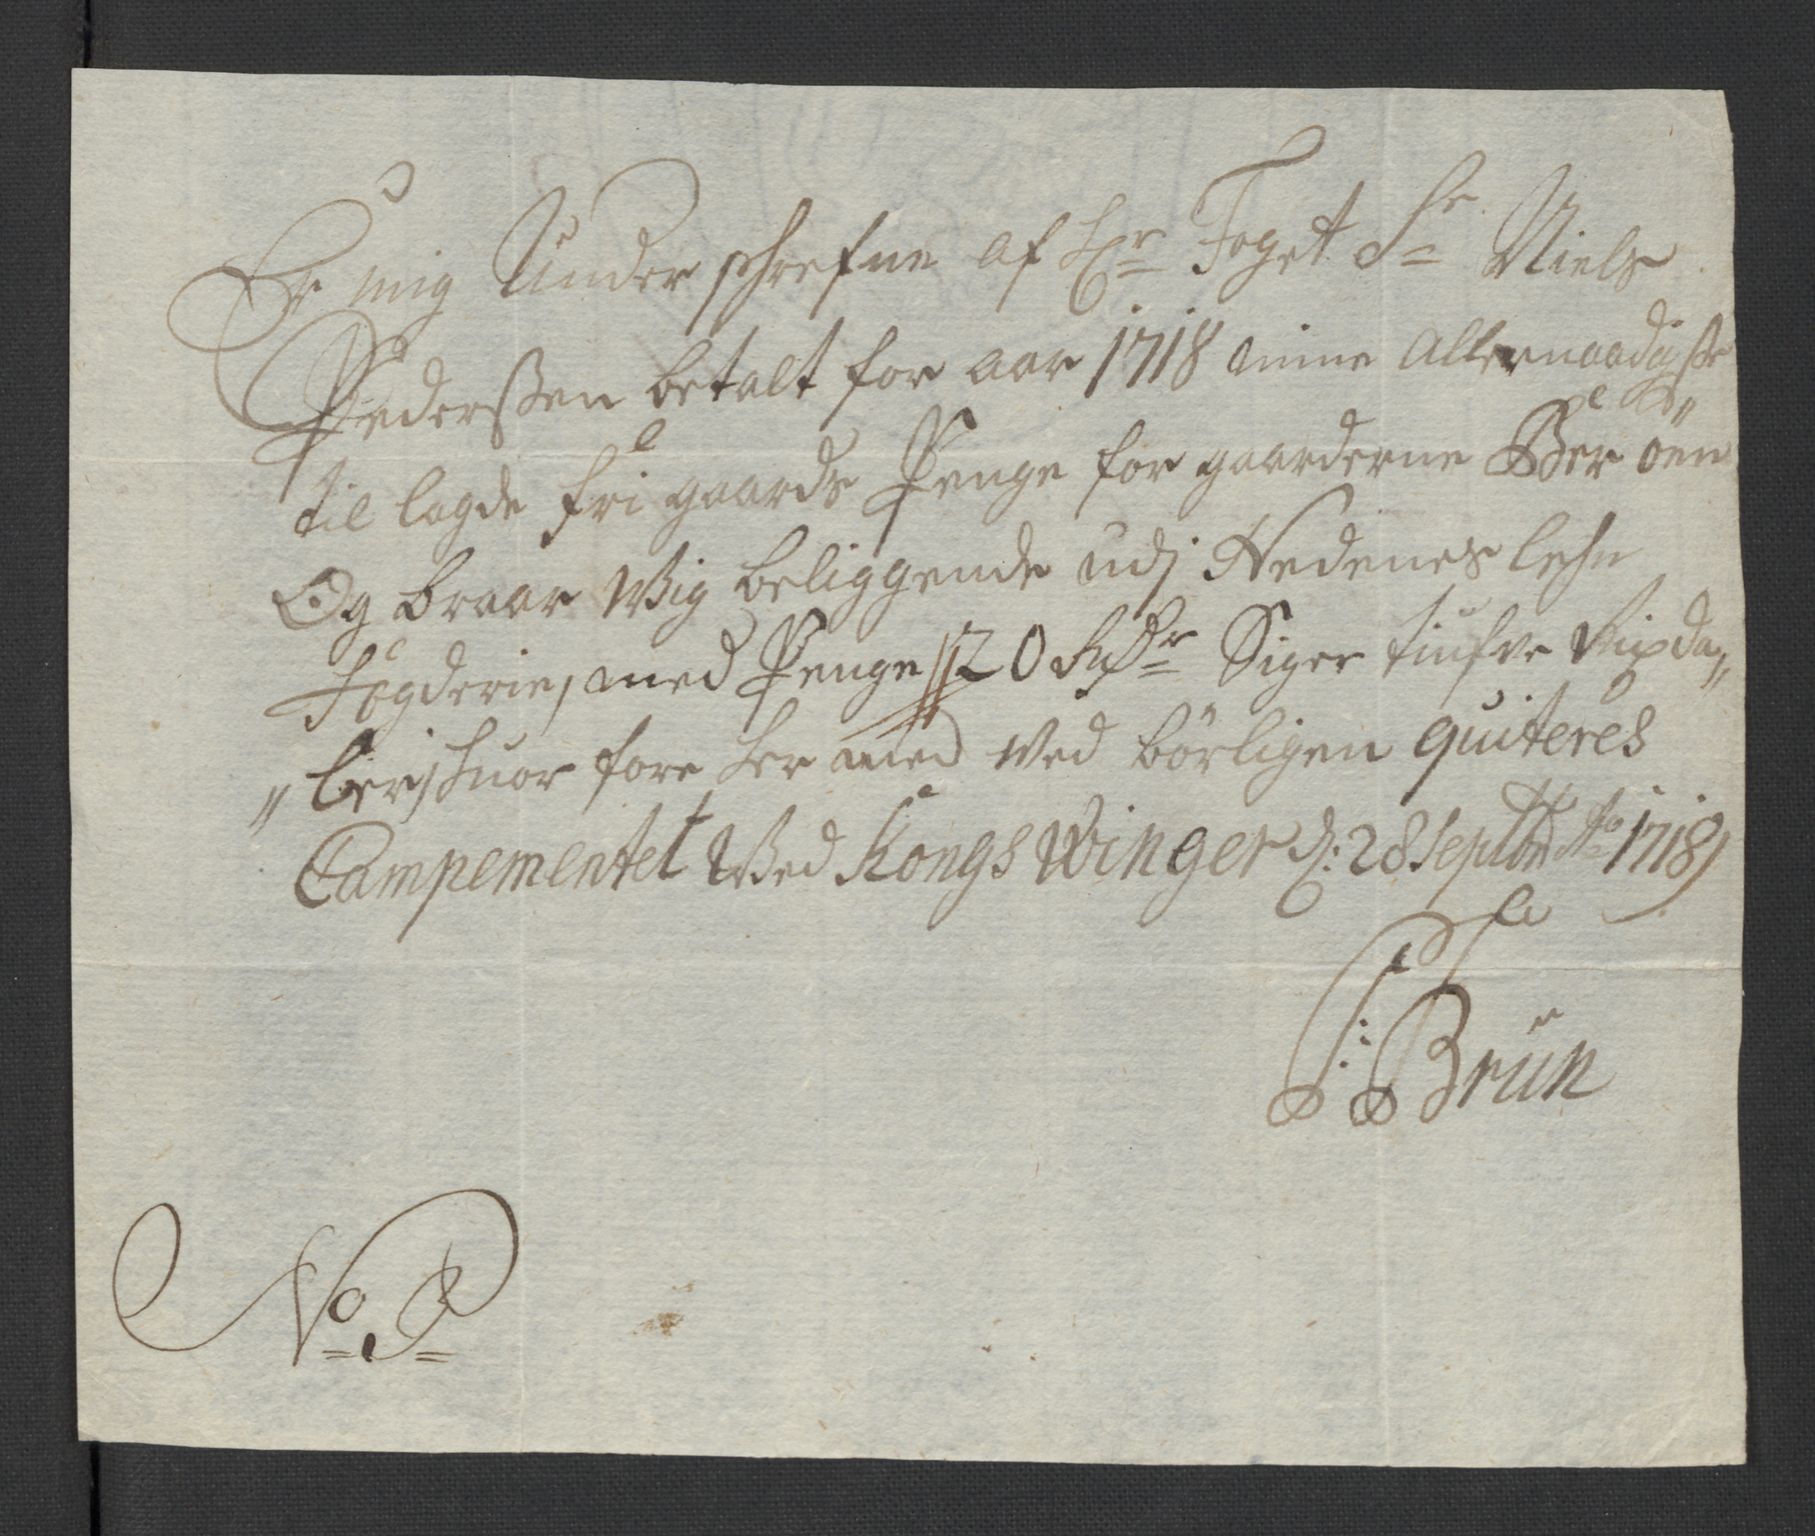 Er mig Under schrefne af Hr Foget Sr Niels
Pederßen betalt for aar 1718 mine Allernaadigste
til lagde fri gaards Penge for gaarderne Bie øen
Og braar Wig beliggende udj Nedenes lehn
Fogderie, med Penge 20 Rdr Siger tiufve Rixda„
„ler, huor fore her med Ved börligen quiteres
Campementet Wed Kongs Winger d: 28 Septbr Ao 1718
Brün
No